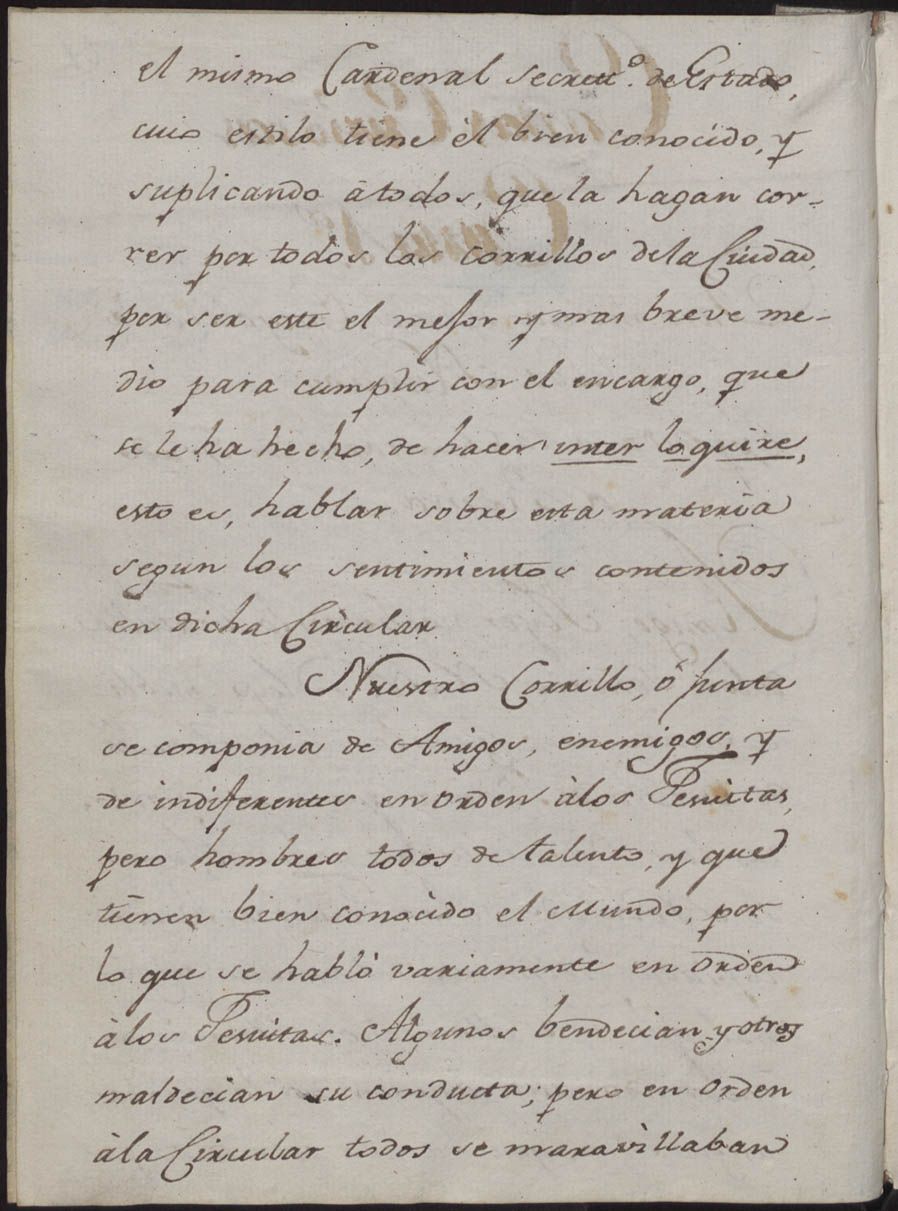 el mismo Cardenal secret.º de Estado,
cuio estilo tiene èl bien conocido, y
suplicando à todos, que la hagan cor-
rer por todos los corrillos de la Ciudad,
por ser este el mejor y mas breve me-
dio para cumplir con el encargo, que
se le ha hecho, de hacer inter loquire,
esto es, hablar sobre esta materia
segun los sentimientos contenidos
en dicha Circular
Nuestro Corrillo, ò junta
se componia de Amigos, enemigos, y
de indiferentes en orden àlos Jesuitas,
pero hombres todos de talento, y que
tienen bien conocido el Mundo, por
lo que se hablò variamente en orden
àlos Jesuitas. Algunos bendecian y otros
maldecian su conducta; pero en orden
àla Circular todos se maravillaban